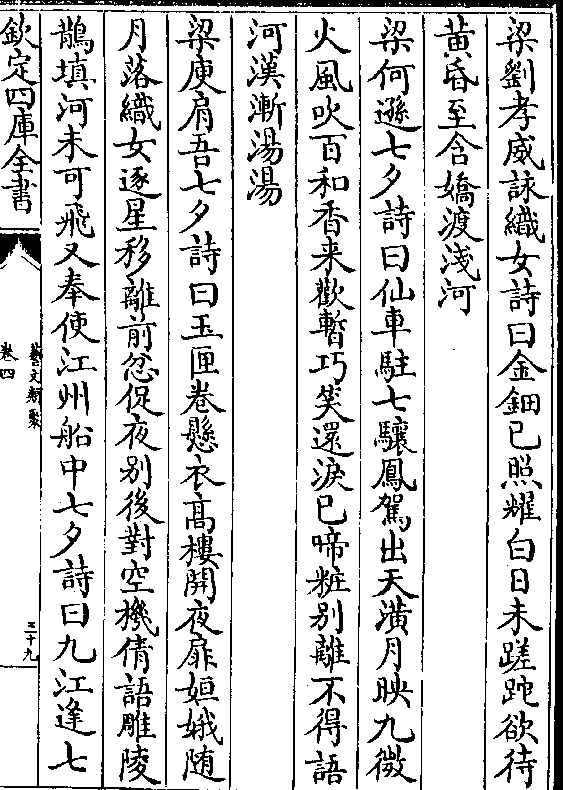 梁劉孝威詠織女詩曰金鈿已照耀白日未蹉跎欲待
黄昏至含嬌渡淺河
梁何遜七夕詩曰仙車駐七驤鳳駕出天潢月映九微
火風吹百和香来歡暫巧笑還淚已啼粧别離不得語
河漢漸湯湯
梁庾肩吾七夕詩曰玉匣卷懸衣高樓開夜扉姮娥随
月落織女逐星移離前忿促夜别後對空機倩語雕陵
鵲填河未可飛又奉使江州船中七夕詩曰九江逢七
欽定四庫全書
藝文類聚
卷四
三十九